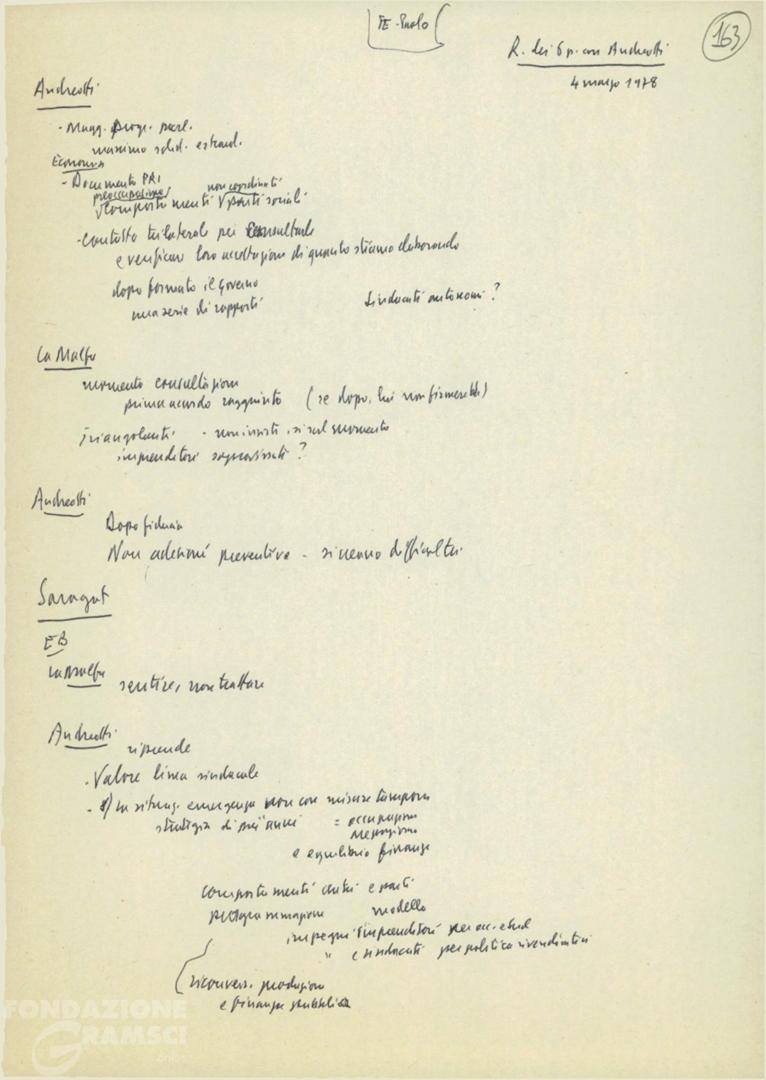 163
R. dei 6 p. con Andreotti
4 marzo 1978
Andreotti
- Magg. progr. parl.
massimo solid.
Economia
- Documento PRI
preoccupazione non coordinati
comportamenti parti sociali
- Contatto trilaterale per consultarle
e verificare loro accettazione di quanto stiamo elaborando
dopo formato il governo
una serie di rapporti
Sindacati autonomi ?
La Malfa
momento consultazione
prima accordo raggiunto (se dopo, lui non firmerebbe)
Triangolarità - non insisti, sul momento
imprenditori ?
Andreotti
Dopo fiducia
Non adesioni preventive - si creano difficoltà
Saragat
EB
La Malfa sentire, non trattare
Andreotti riprende
- Valore linea sindacale
- In situaz. emergenza non con misure tampone
strategia di più anni = occupazione
Mezzogiorno
e equilibrio finanze
comportamenti autori e parti
programmazione modello
impegni imprenditori per
" e sindacati per politica rivendicativa
riconvers. produzione
e finanza pubblica
FONDAZIONE
GRAMSCI